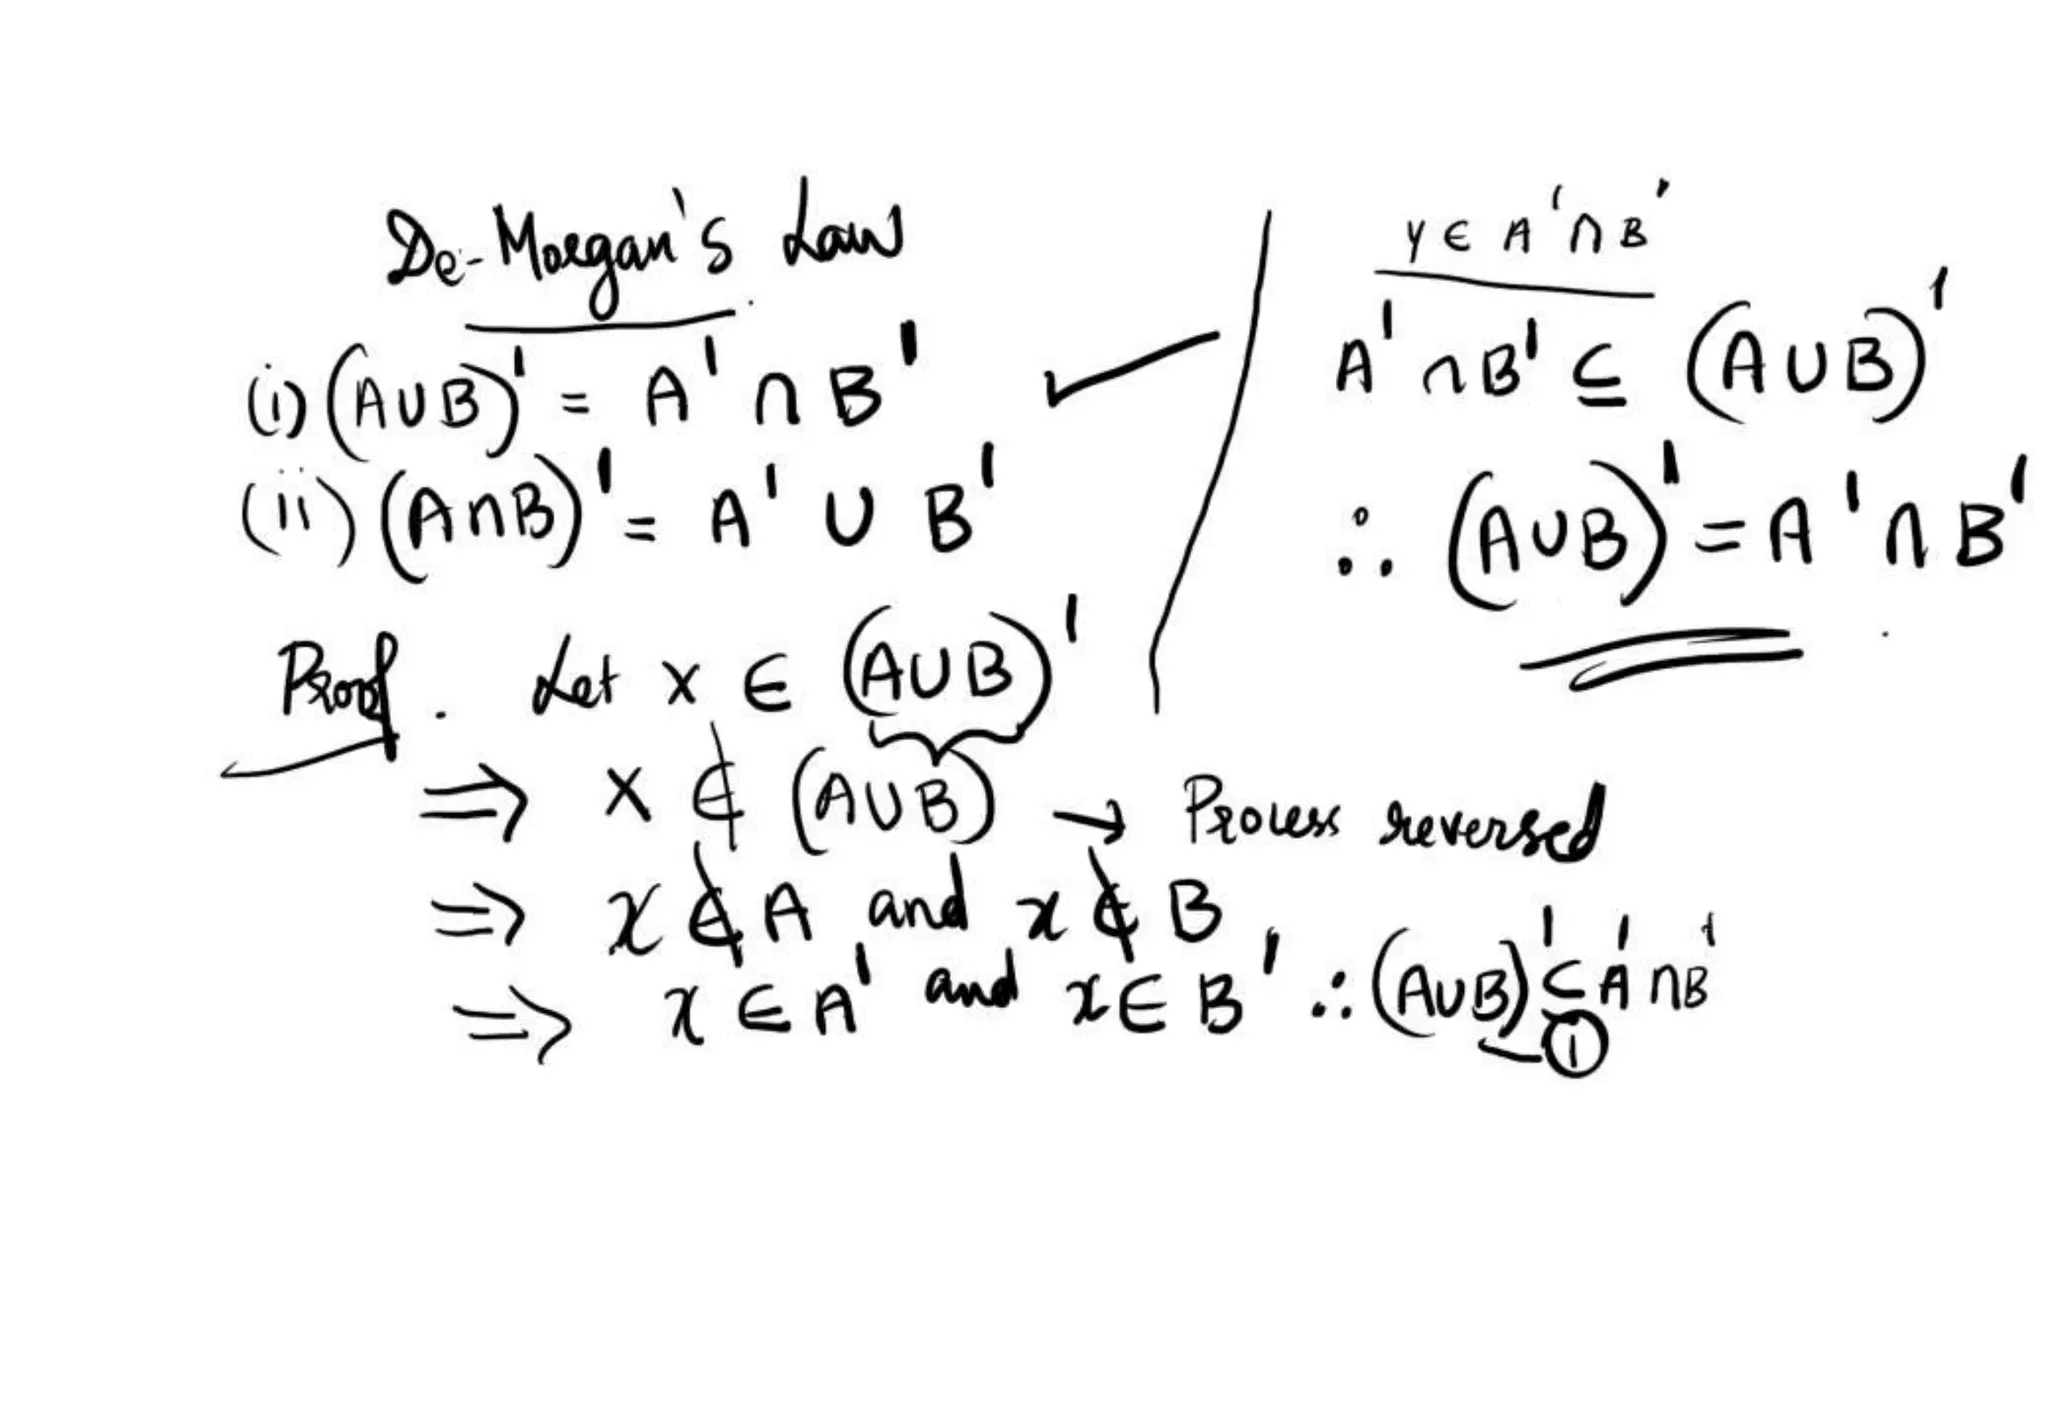 De-Morgan's Law
(i) (A∪B)' = A' ∩ B'
(ii) (A∩B)' = A' ∪ B'
Proof. Let x ∈ (A∪B)'
⇒ x ∉ (A∪B) → Process reversed
⇒ x ∉ A and x ∉ B
⇒ x ∈ A' and x ∈ B' ∴ (A∪B)' ⊆ A' ∩ B'
①
y ∈ A' ∩ B'
A' ∩ B' ⊆ (A∪B)'
∴ (A∪B)' = A' ∩ B'